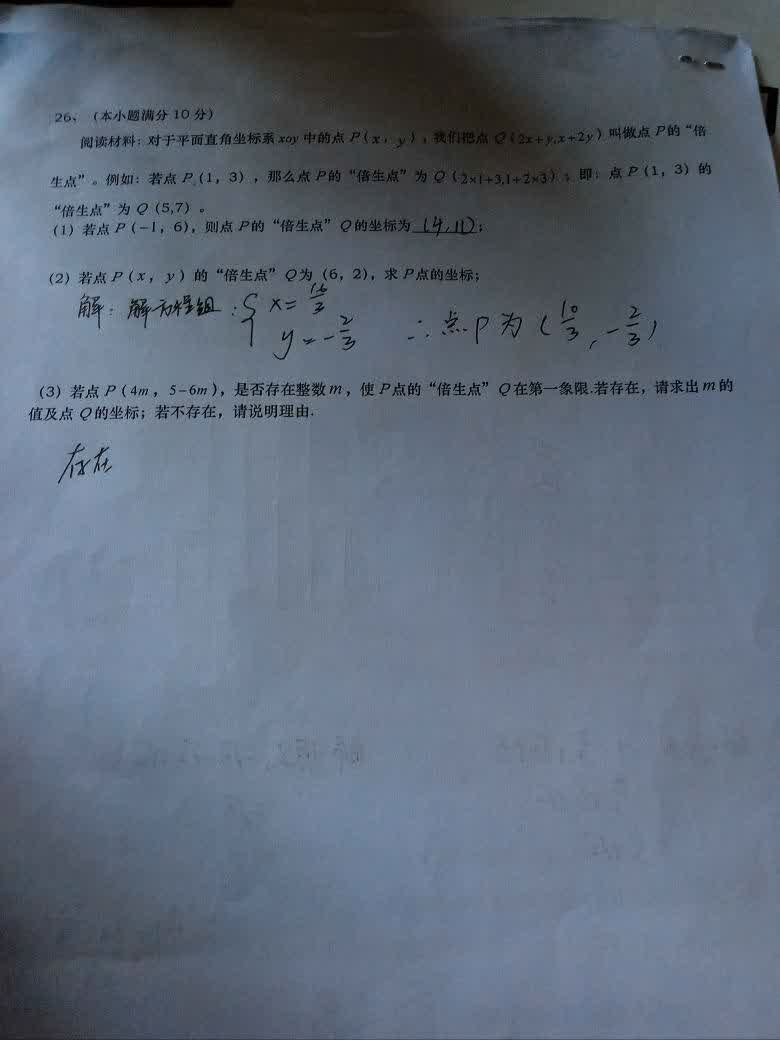 26、（本小题满分 10 分）
阅读材料：对于平面直角坐标系 xoy 中的点 P（x，y），我们把点 Q（2x+y,x+2y）叫做点 P的“倍
生点”。例如：若点 P（1，3），那么点 P的“倍生点”为 Q（2×1+3,1+2×3），即：点 P（1，3）的
“倍生点”为 Q（5,7）。
（1）若点 P（-1，6），则点 P的“倍生点”Q的坐标为 (4,11)；
（2）若点 P（x，y）的“倍生点”Q为（6，2），求 P点的坐标；
解：解方程组：{ x=
y=-2/3 ∴点P为(10/3,-2/3)
（3）若点 P（4m，5-6m），是否存在整数 m，使 P点的“倍生点”Q在第一象限.若存在，请求出 m的
值及点 Q的坐标；若不存在，请说明理由.
存在